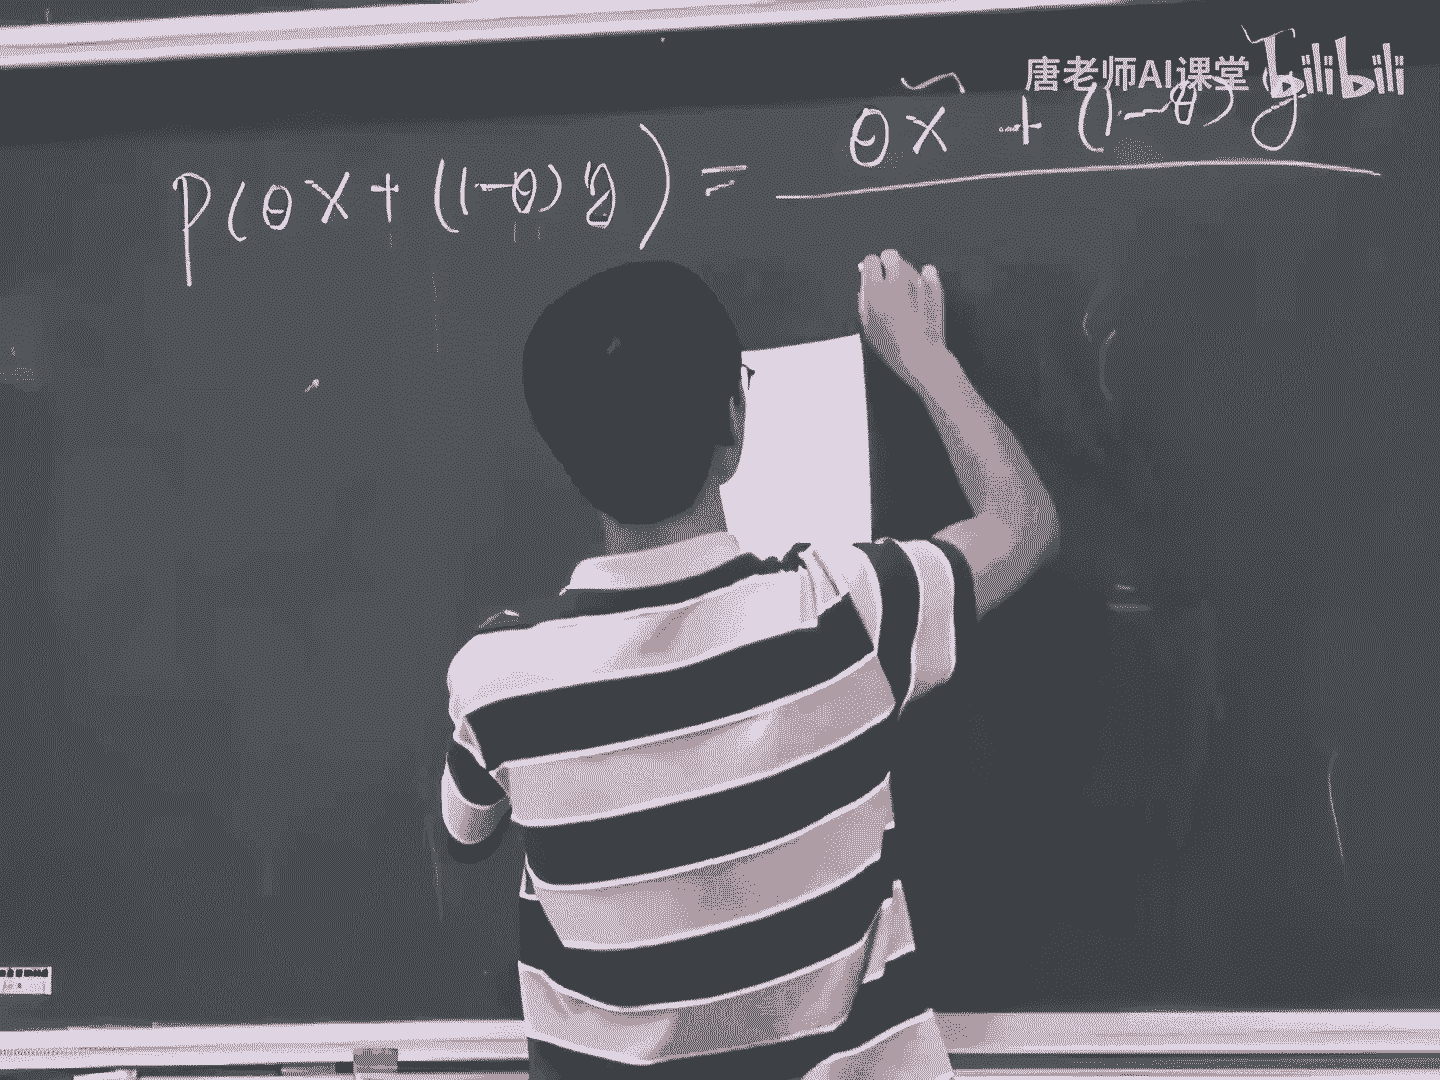 唐老师AI课堂 bilibili
P(θx + (1-θ)y) = θx̃ + (1-θ)ỹ